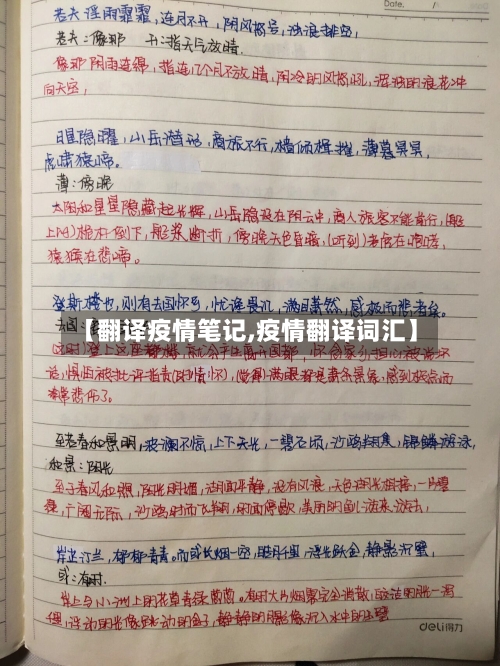 Date.
若夫淫雨霏霏,连月不开,阴风怒号,浊浪排空,
若夫:像那 开:指天气放晴.
像那阴雨连绵,指连几个月不放晴,阴冷的风怒吼,浑浊的浪花冲
向天空,
日星隐曜,山岳潜形,商旅不行,樯倾楫摧,薄暮冥冥,
虎啸猿啼。
薄:傍晚
太阳和星星隐藏起光辉,山岳隐没在阴云中,商人旅客不能前行,(船
上的)桅杆倒下,船桨断折,傍晚天色昏暗,(听到)老虎在咆哮,
猿猴在悲啼。
登斯楼也,则有去国怀乡,忧谗畏讥,满目萧然,感极而悲者矣。
去国:
【翻译疫情笔记,疫情翻译词汇】
话,惧怕被批评指责(的情怀),(觉得)满眼都是萧条景象,感到极点而
非常悲伤了。
至若春和景明,波澜不惊,上下天光,一碧万顷,沙鸥翔集,锦鳞游泳,
和景:阳光
至于春风和煦,阳光明媚,湖面平静,没有风浪,天色湖光相接,一片碧
绿,广阔无际,沙鸥时而飞翔,时而停歇,美丽的鱼游来游去,
岸芷汀兰,郁郁青青。而或长烟一空,皓月千里,浮光跃金,静影沉璧,
或:有时.
岸上与小洲上的花草青绿茂盛。有时大片烟雾完全消散,皎洁的月光一泻
deli得力